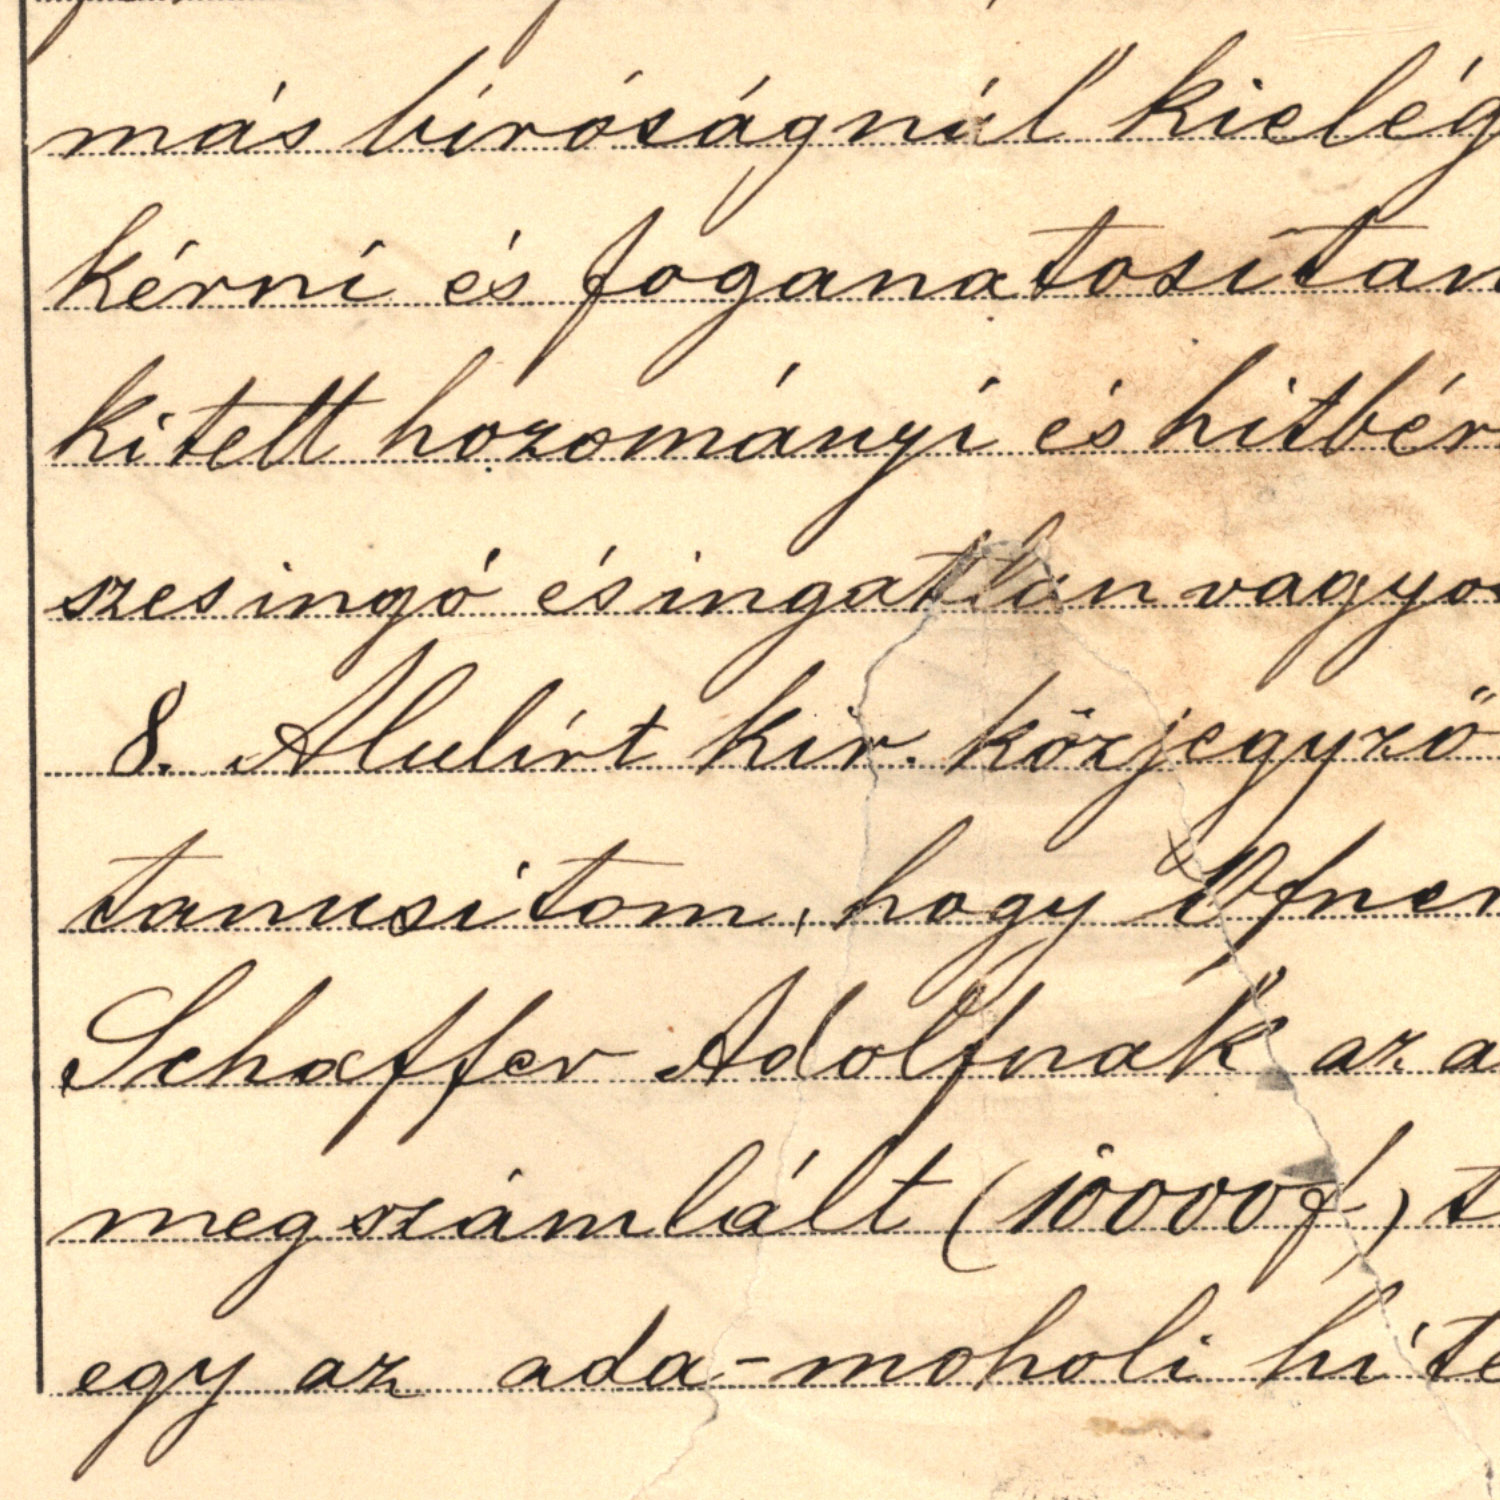 más biróságnál kielég
kérni és foganatositan
kitett hozományi és hitbér
szes ingó és ingatlan vagyo
8. Alulírt kir. közjegyző
tanusitom, hogy Ofner
Schaffer Adolfnak az a
megszámlált (10000 f) t
egy az ada-moholi hite